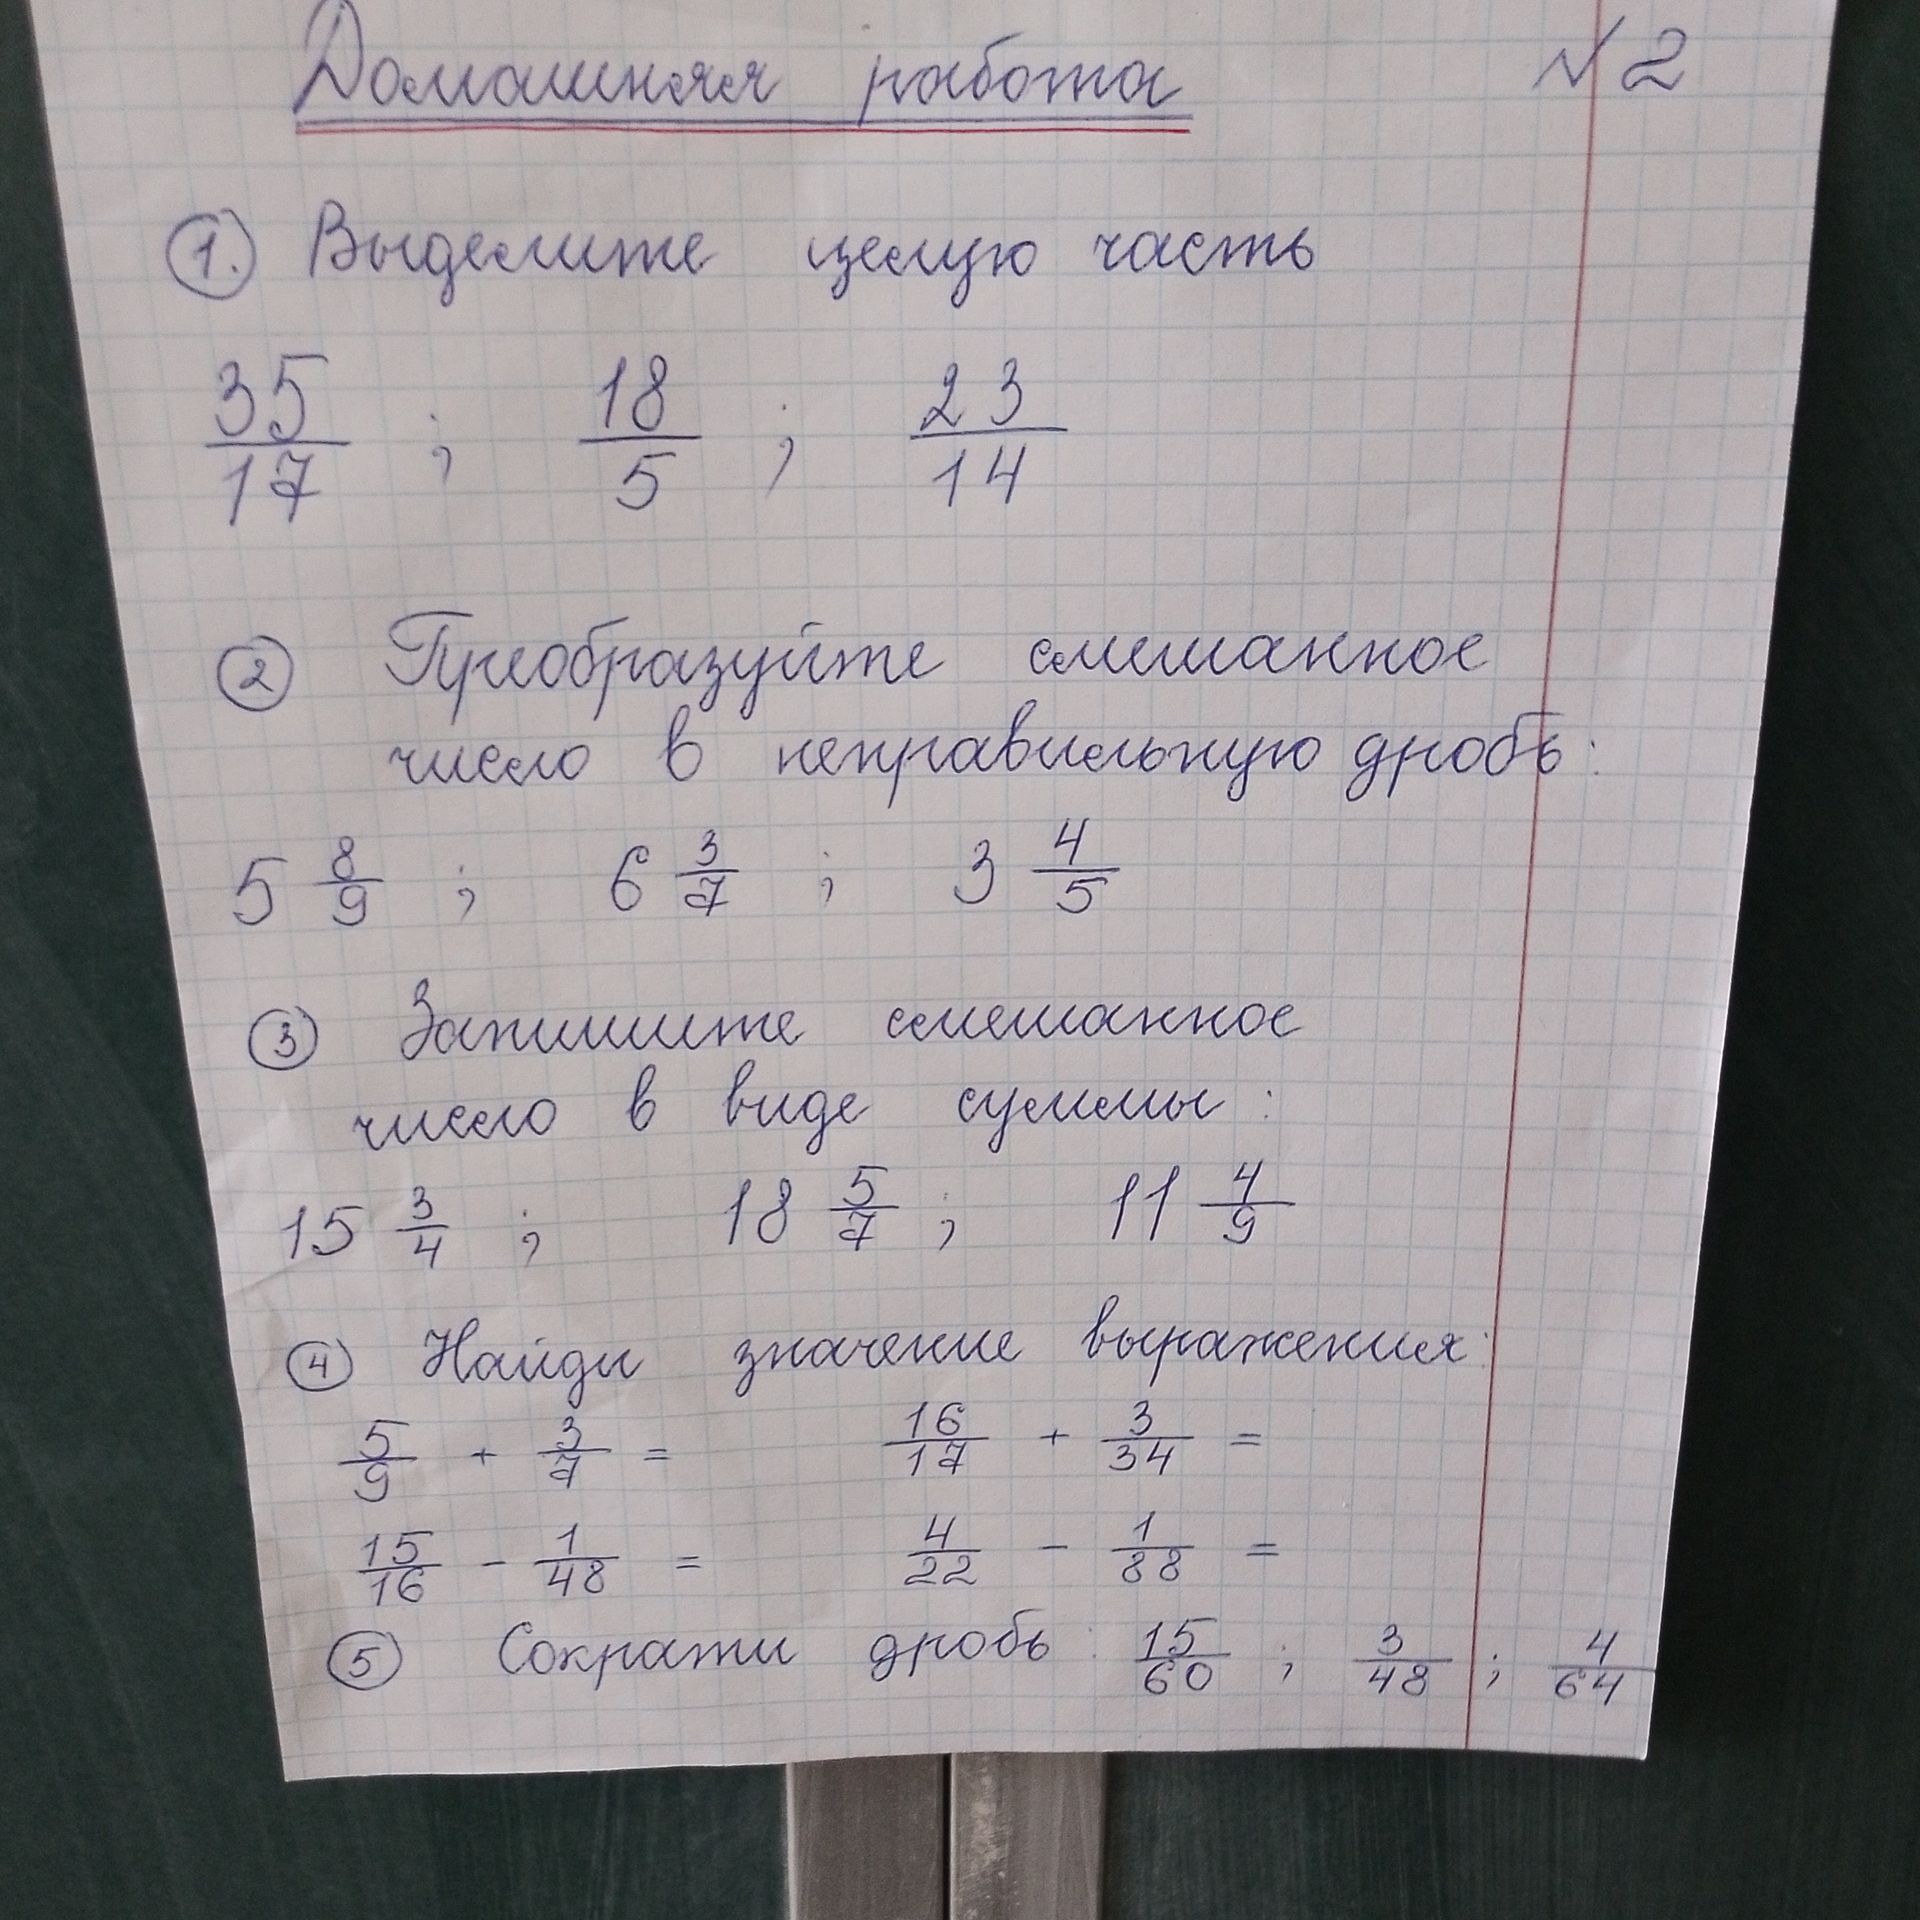 Домашняя работа №2
1. Выделите целую часть
35/17 ; 18/5 ; 23/14
2 Преобразуйте смешанное
число в неправильную дробь:
5 8/9 ; 6 3/7 ; 3 4/5
3 Запишите смешанное
число в виде суммы:
15 3/4 ; 18 5/7 ; 11 4/9
4 Найди значение выражения:
5/9 + 3/7 = 16/17 + 3/34 =
15/16 - 1/48 = 4/22 - 1/88 =
5 Сократи дробь: 15/60 ; 3/48 ; 4/64